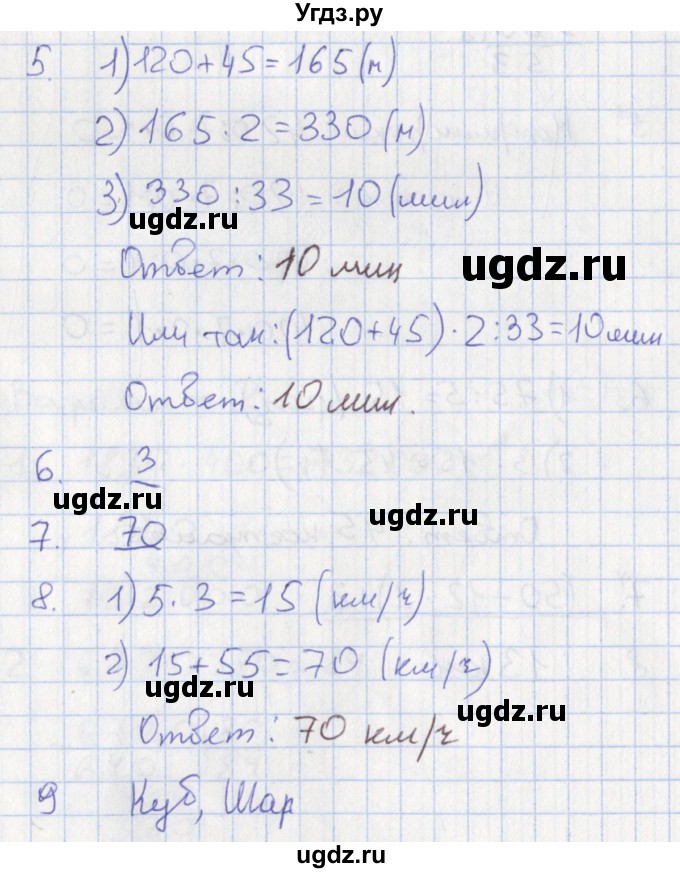 Угдз.ру
5. 1) 120+45=165 (м)
2) 165·2=330 (м)
3) 330:33=10 (мин)
ugdz.ru
Ответ: 10 мин
ugdz.ru
Или так: (120+45)·2:33=10 мин
Ответ: 10 мин.
6. 3
ugdz.ru
ugdz.ru
7. 70
8. 1) 5·3=15 (км/ч)
2) 15+55=70 (км/ч)
ugdz.ru
ugdz.ru
Ответ: 70 км/ч
9 Куб, Шар
ugdz.ru